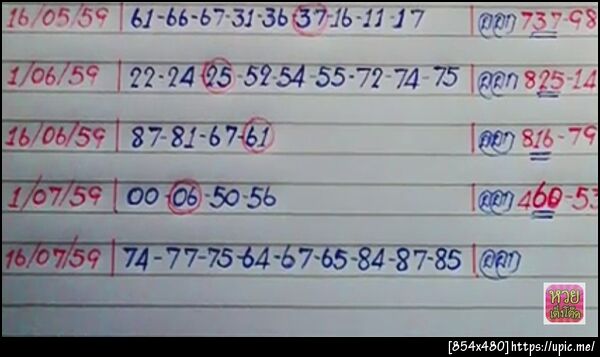 16/05/59 61-66-67-31-36-37-16-11-17 ออก 737-98
1/06/59 22-24-25-52-54-55-72-74-75 ออก 825-14
16/06/59 87-81-67-61 ออก 816-79
1/07/59 00-06-50-56 ออก 460-53
16/07/59 74-77-75-64-67-65-84-87-85 ออก
หวย
เด็งโค๊ด
[854x480]https://upic.me/